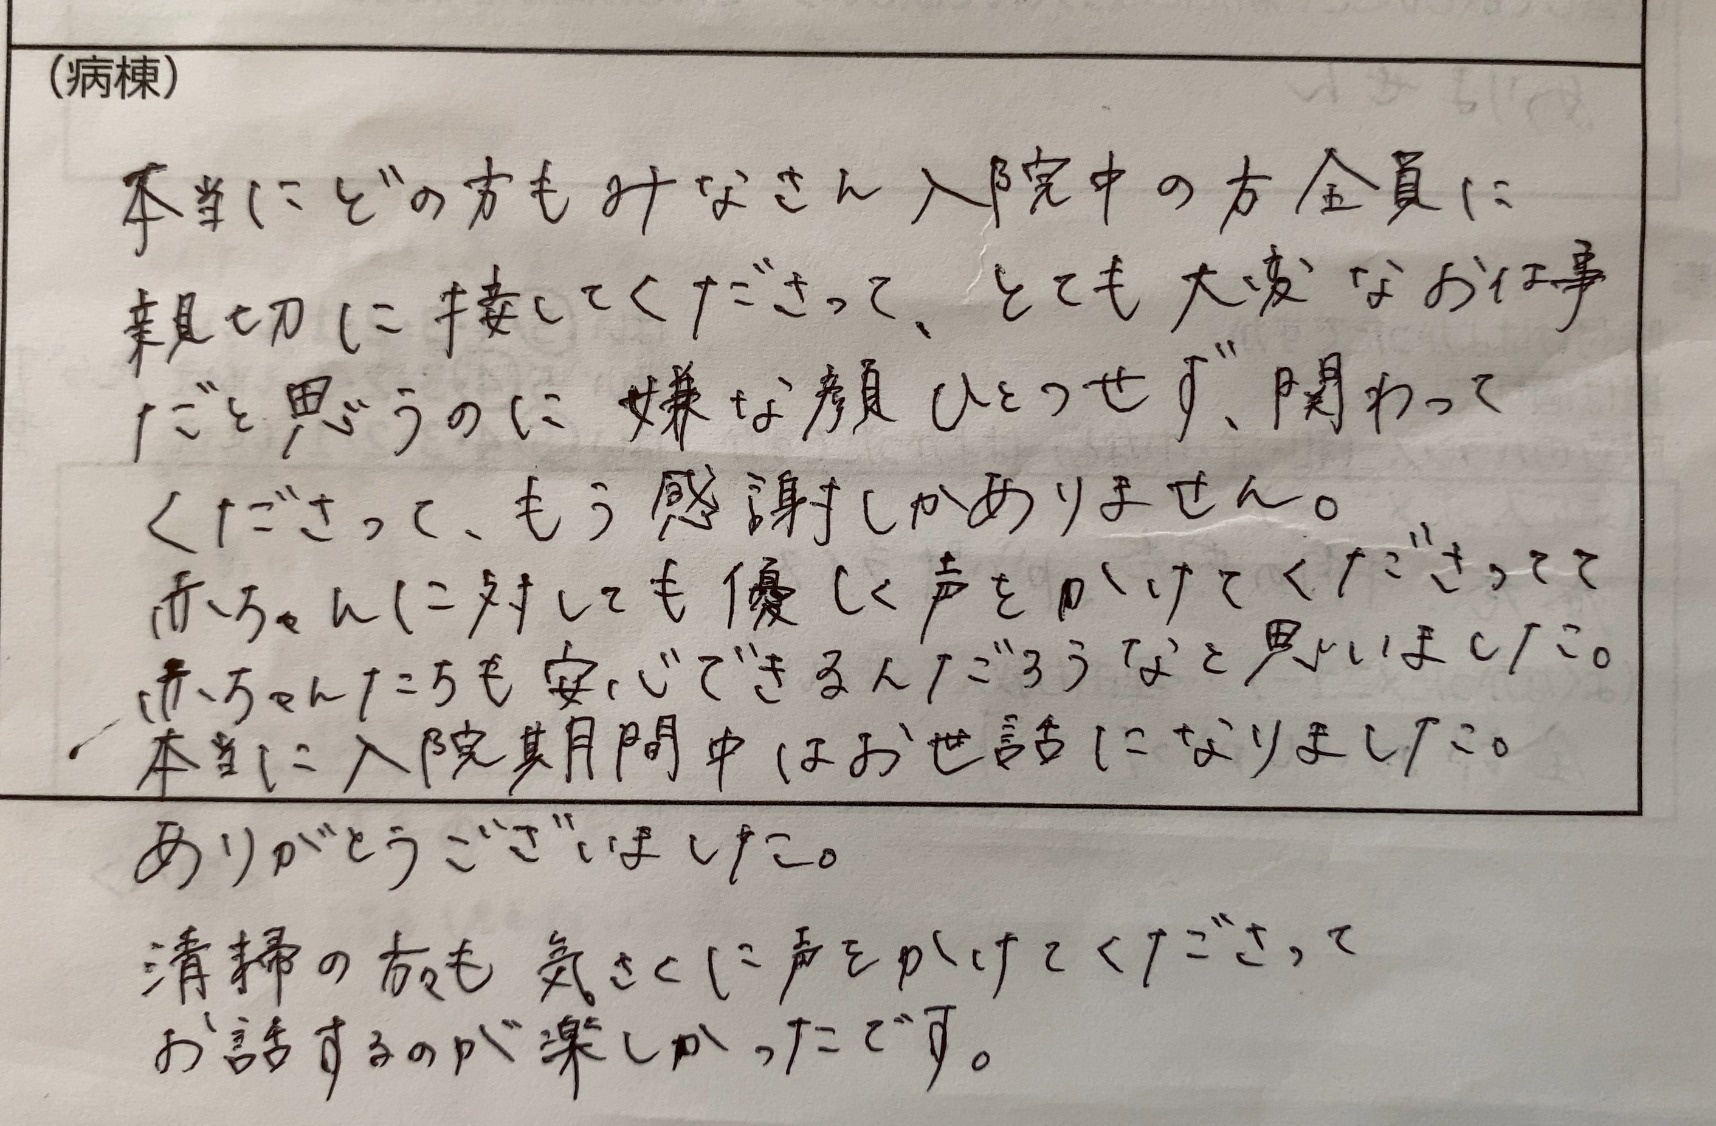 (病棟)
本当にどの方もみなさん入院中の方全員に
親切に接してくださって、とても大変なお仕事
だと思うのに嫌な顔ひとつせず、関わって
くださって、もう感謝しかありません。
赤ちゃんに対しても優しく声をかけてくださってて
赤ちゃんたちも安心できるんだろうなと思いました。
本当に入院期間中はお世話になりました。
ありがとうございました。
清掃の方々も気さくに声をかけてくださって
お話するのが楽しかったです。